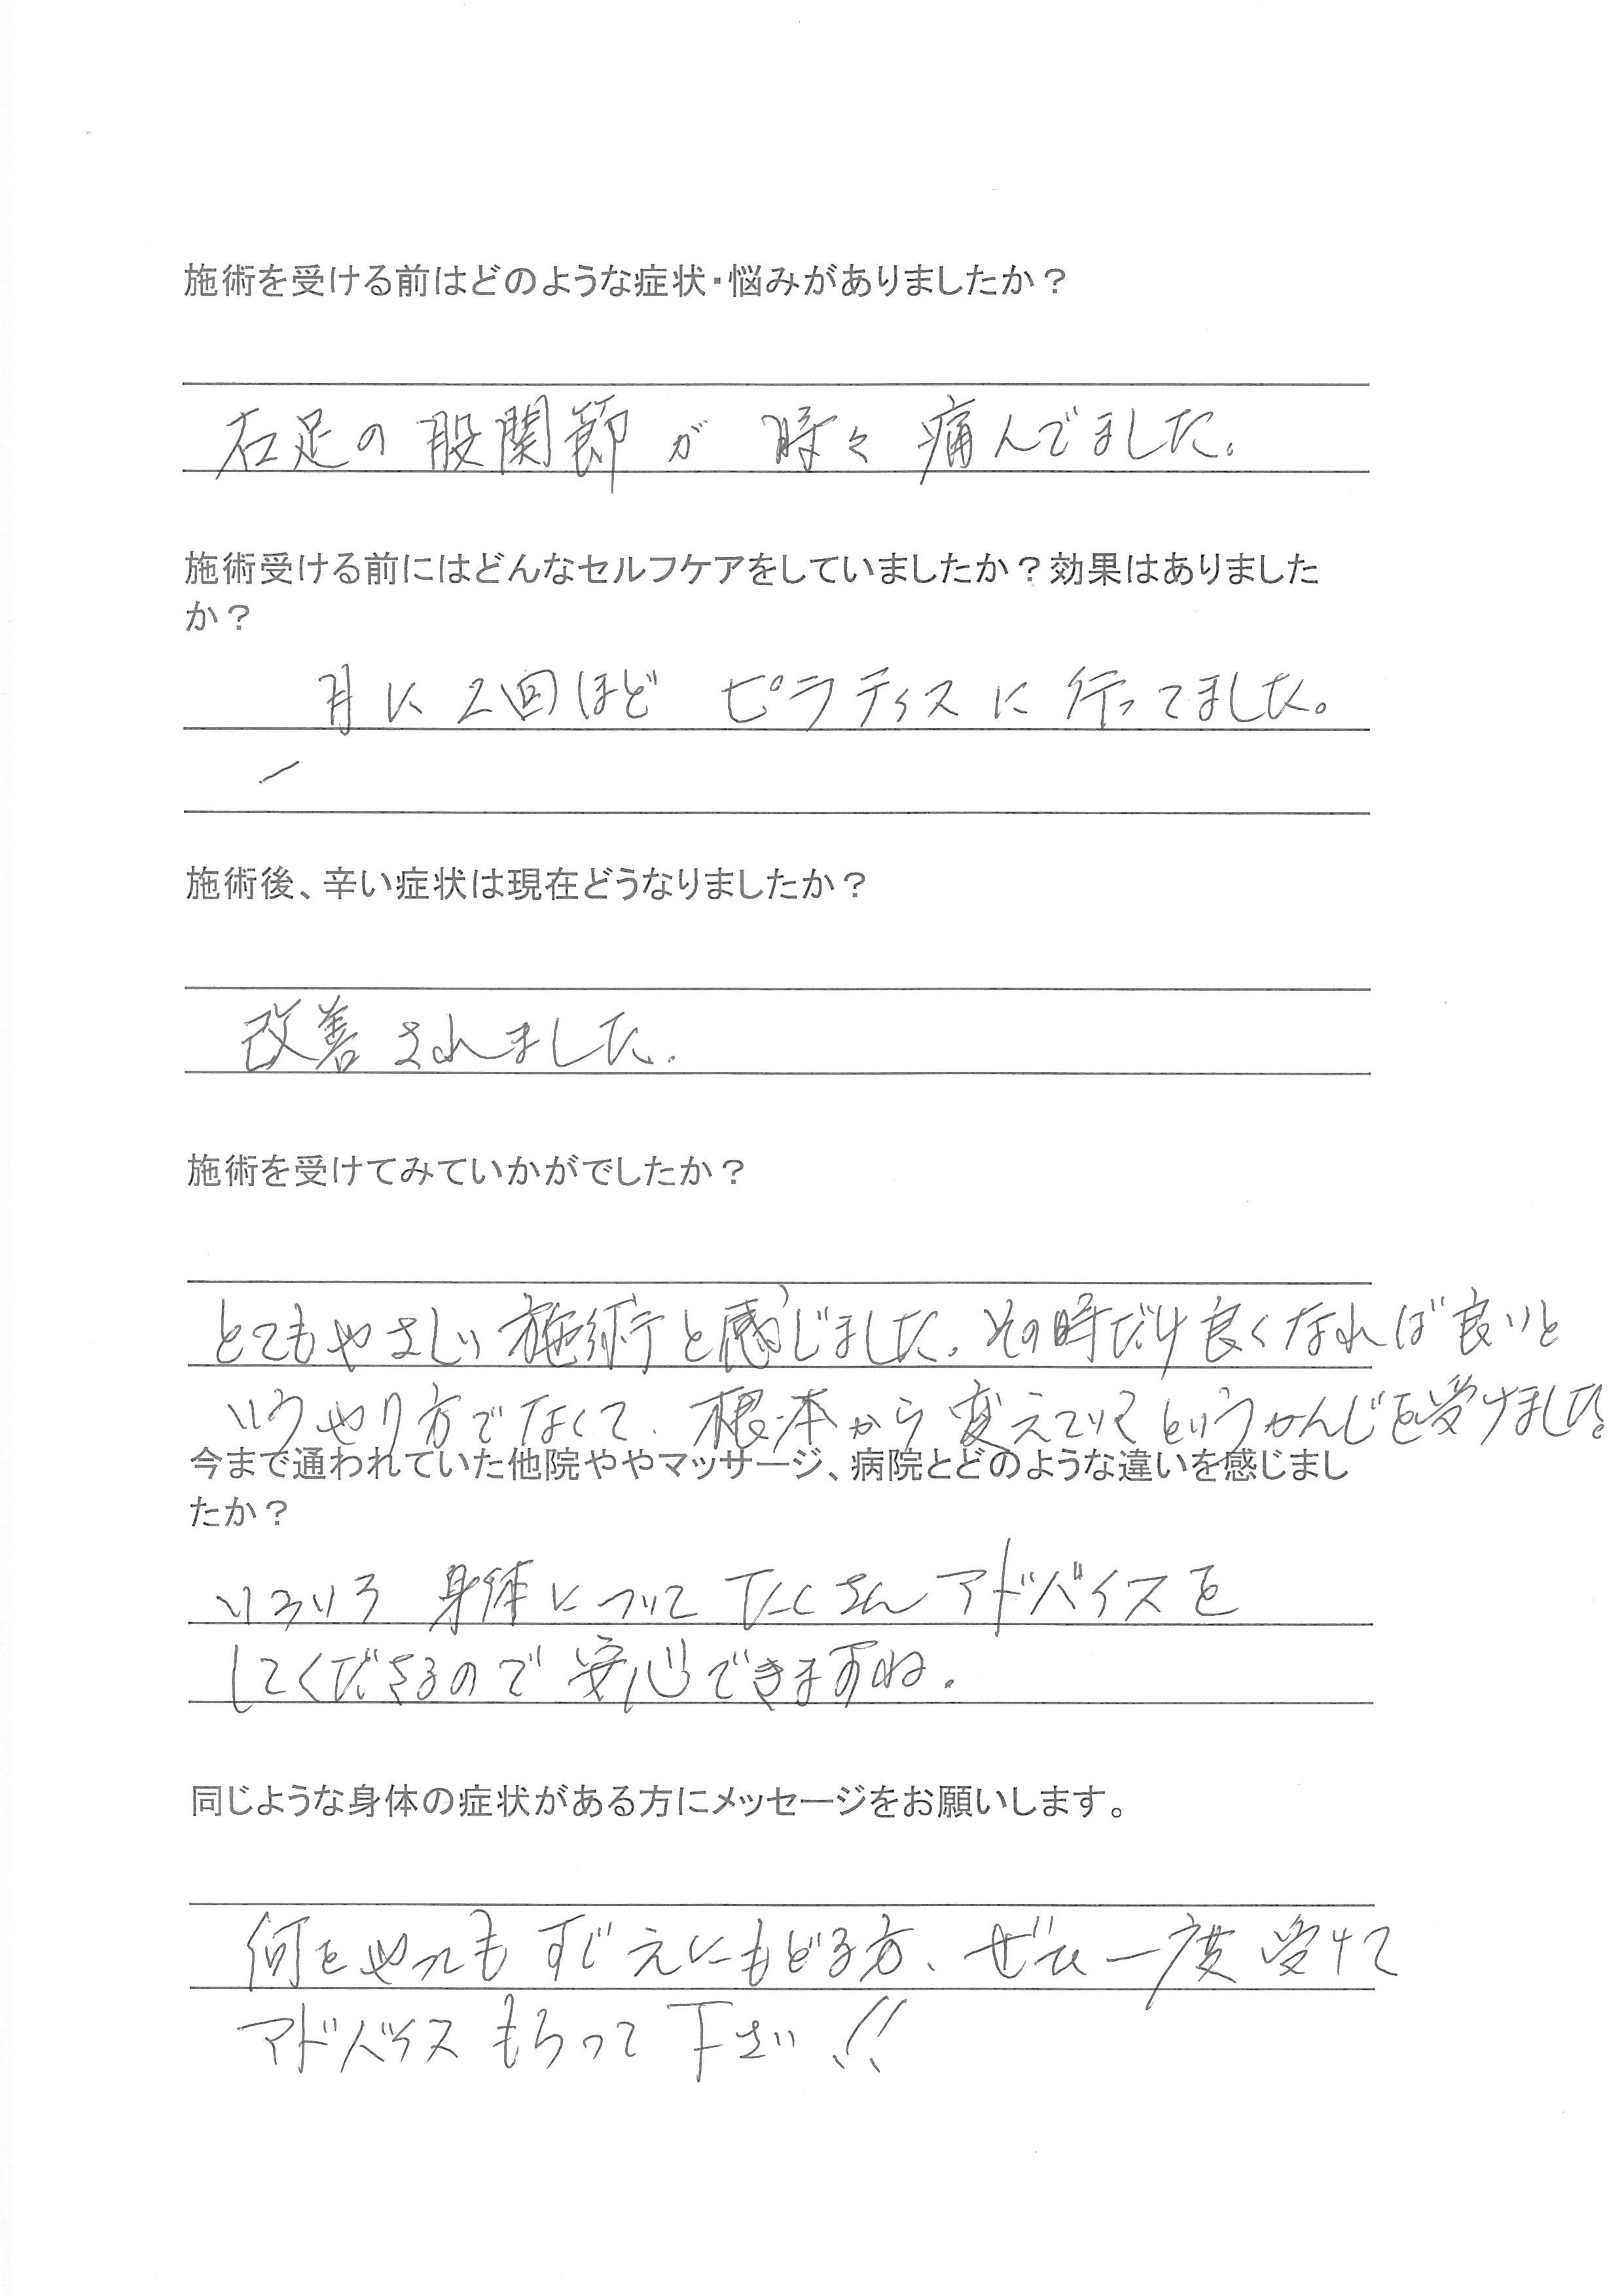 施術を受ける前はどのような症状・悩みがありましたか？
右足の股関節が 時々 痛んでました。
施術受ける前にはどんなセルフケアをしていましたか？効果はありました
か？
月に2回ほど ピラティスに行ってました。
施術後、辛い症状は現在どうなりましたか？
改善されました.
施術を受けてみていかがでしたか？
とてもやさしい施術と感じました。その時だけ良くなれば良いと
いうやり方でなくて、根本から変えていくというかんじを受けました。
今まで通われていた他院ややマッサージ、病院とどのような違いを感じまし
たか？
いろいろ 身体について たくさん アドバイスを
してくださるので安心できますね.
同じような身体の症状がある方にメッセージをお願いします。
何をやっても すじえにもどる方、ぜひ一度受けて
アドバイス もらって 下さい!!